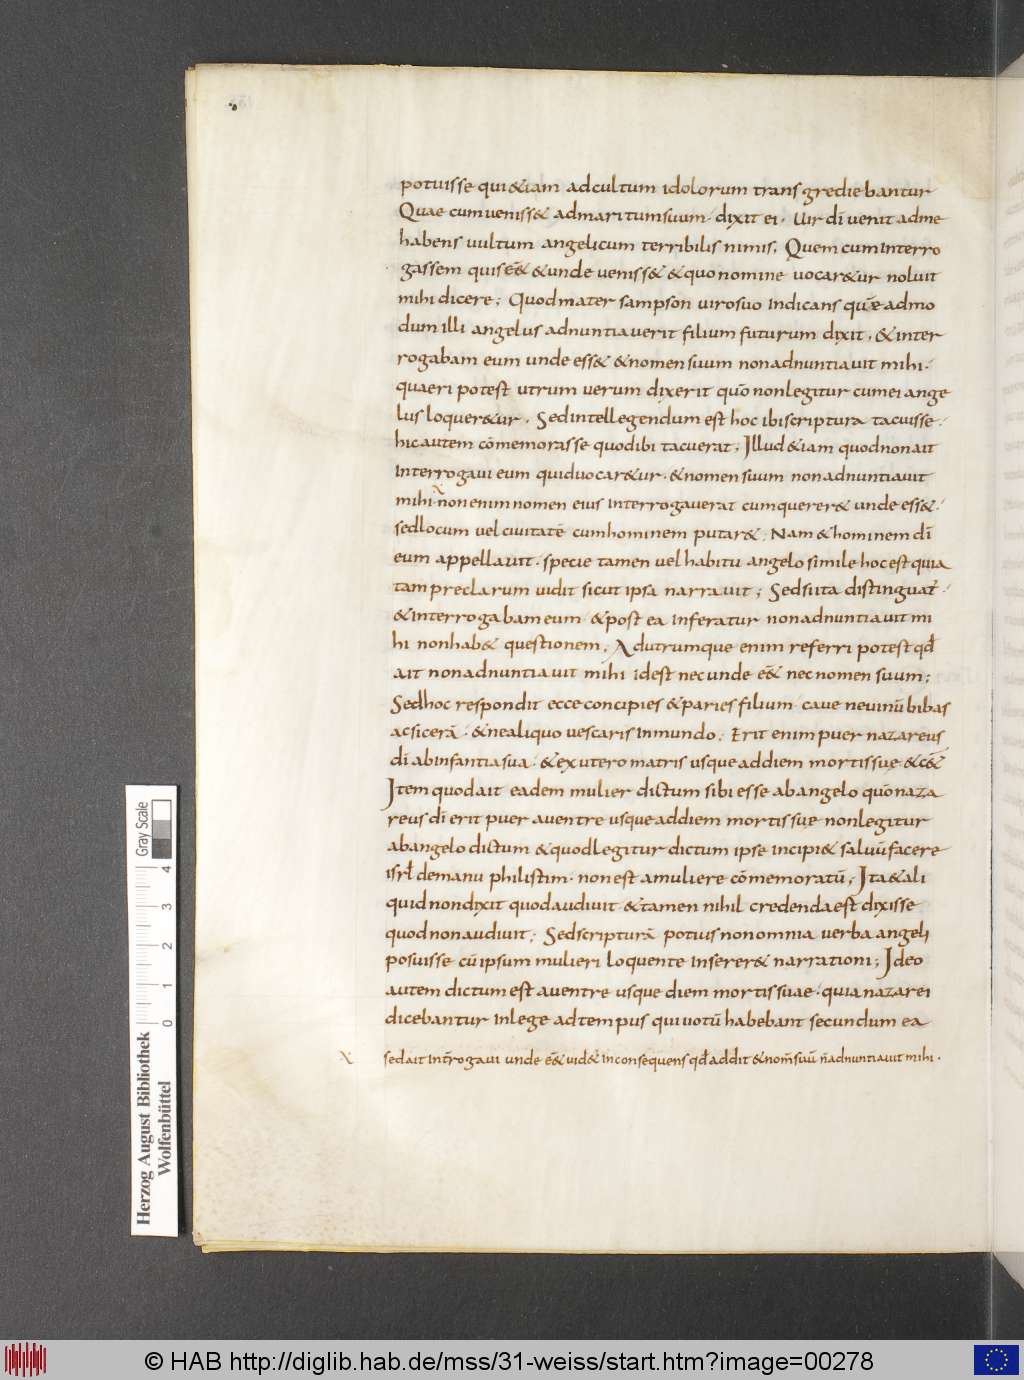 potuisse qui &iam ad cultum idolorum transgrediebantur
Quae cum veniss& ad maritum suum · dixit ei · Uir dī venit ad me
habens vultum angelicum terribilis nimis, Quem cum interro
gassem quis ēē& & unde veniss& & quo nomine vocar&ur noluit
mihi dicere; Quod mater sampson viro suo indicans quēadmo
dum illi angelus adnuntiaverit filium futurum dixit, & inter
rogabam eum unde ess& & nomen suum non adnuntiavit mihi ·
quaeri potest utrum verum dixerit quō non legitur cum ei ange
lus loquer&ur. Sed intellegendum est hoc ibi scriptura tacuisse ·
hic autem cōmemorasse quod ibi tacuerat, Illud &iam quod non ait
interrogavi eum quid vocar&ur · & nomen suum non adnuntiavit
mihi · non enim nomen eius interrogaverat cum querer& unde ess& ·
sed locum vel civitatē cum hominem putar&; Nam & hominem dī
eum appellavit · specie tamen vel habitu angelo simile hoc est quia
tam preclarum vidit sicut ipsa narravit; Sed si ita distinguat̄ ·
& interrogabam eum & post ea inferatur non adnuntiavit mi
hi non hab& questionem, Ad utrumque enim referri potest qđ
ait non adnuntiavit mihi id est nec unde ēē& nec nomen suum;
Sed hoc respondit ecce concipies & paries filium cave ne vinū bibas
ac sicerā · & ne aliquo vescaris inmundo; Erit enim puer nazareus
dī ab infantia sua · & ex utero matris usque ad diem mortis suę & c&
Item quod ait eadem mulier dictum sibi esse ab angelo quō naza
reus dī erit puer a ventre usque ad diem mortis suę non legitur
ab angelo dictum & quod legitur dictum ipse incipi& salvū facere
isrł de manu philistim · non est a muliere cōmemoratū; Ita & ali
quid non dixit quod audivit & tamen nihil credenda est dixisse
quod non audivit; Sed scripturā potuis non omnia verba angeli
posuisse cū ipsum mulieri loquente inserer& narrationi; Ideo
autem dictum est a ventre usque diem mortis suae · quia nazarei
dicebantur in lege ad tempus qui votū habebant secundum ea
sed ait int̄rogavi unde ēē& vid& inconsequens qđ addit & nom̄ suū n̄ adnuntiavit mihi ·
Gray Scale
4
3
2
1
0
Herzog August Bibliothek
Wolfenbüttel
© HAB http://diglib.hab.de/mss/31-weiss/start.htm?image=00278